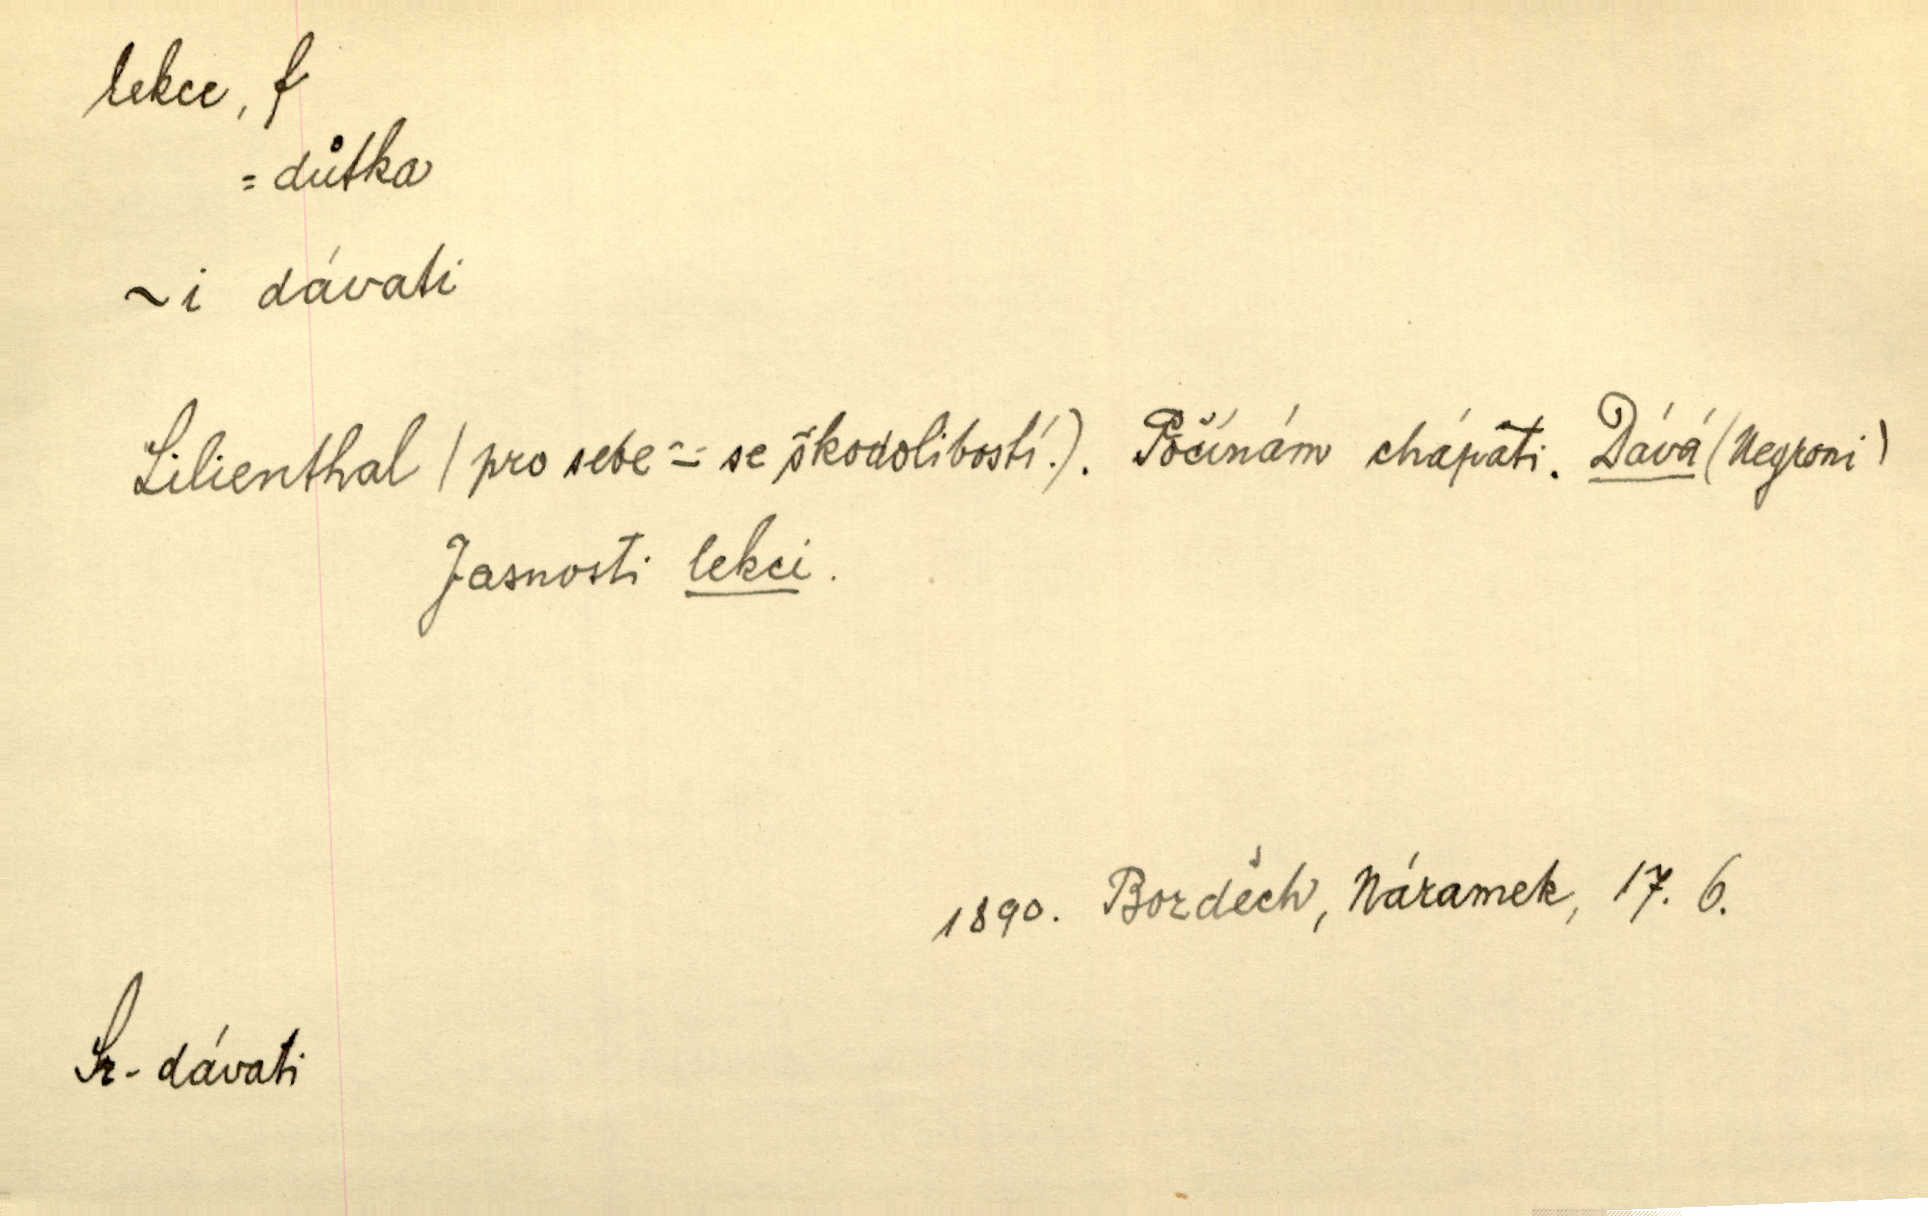 lekce, f
= důtka
~i dávati
Lilienthal (pro sebe - se škodolibostí.). Počínám chápati. Dává (Negroni)
Jasnosti lekci.
1890. Bozděch, Náramek, 17. 6.
Sr - dávati